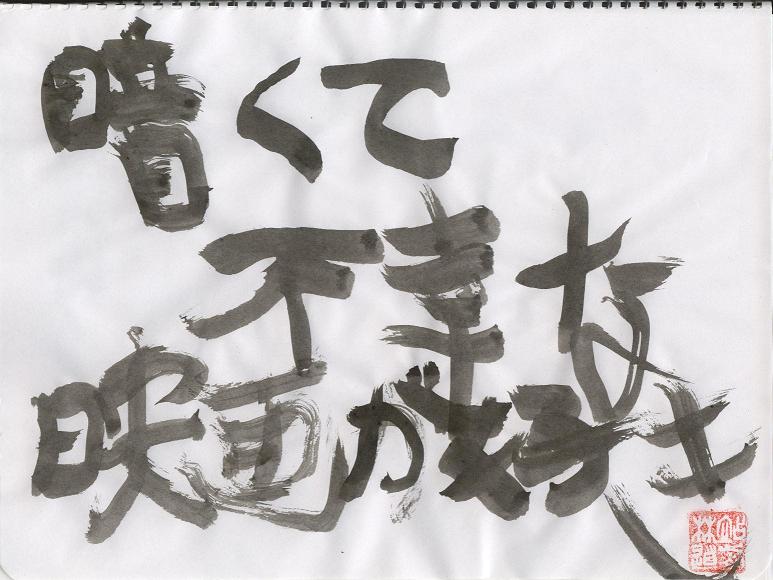 暗くて
不幸な
映画が好き